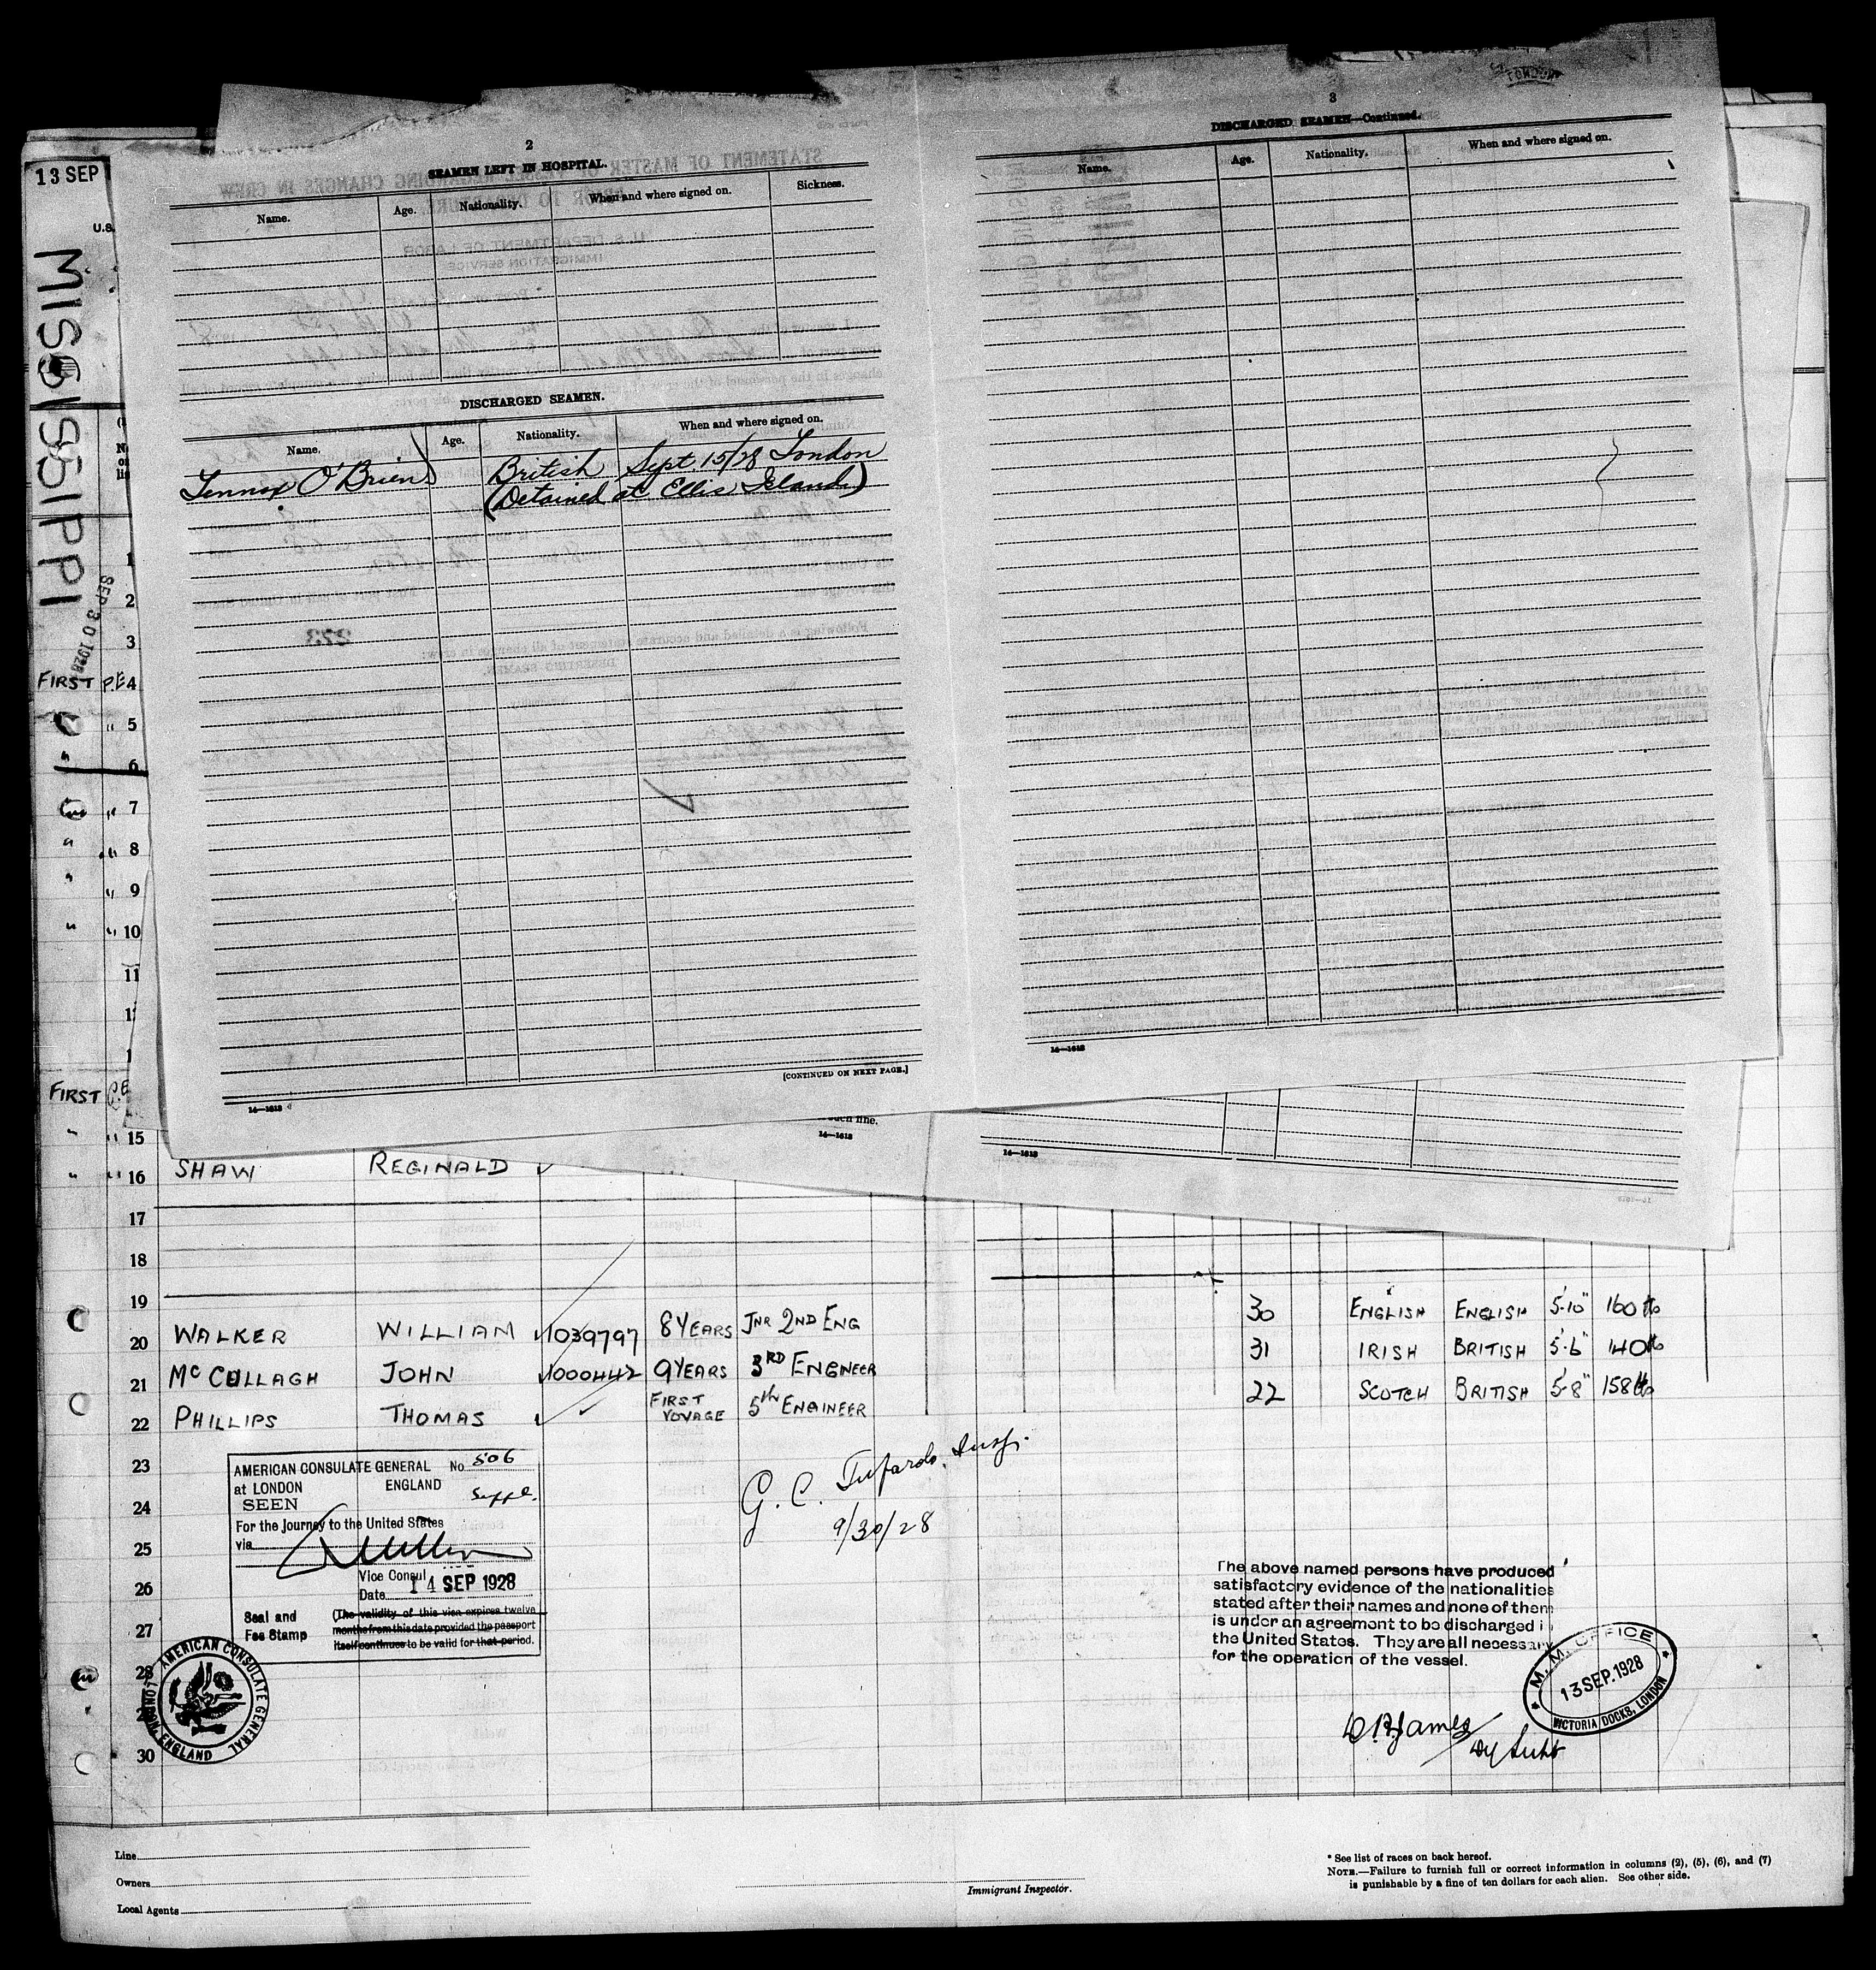 13 SEP
U.S.
MISSISSIPPI
SEP 30 1928
2
SEAMEN LEFT IN HOSPITAL.
Name. Age. Nationality. When and where signed on. Sickness.
DISCHARGED SEAMEN.
Name. Age. Nationality. When and where signed on.
Lennox O'Brien British Sept 15/28 London
(Detained at Ellis Island)
[CONTINUED ON NEXT PAGE.]
14—1613
3
DISCHARGED SEAMEN—Continued.
Name. Age. Nationality. When and where signed on.
14—1613
each line.
14—1613
14—1613
1
2
3
FIRST P.E 4
5
" 6
7
" " 8
" " 9
" " 10
11
1
1
FIRST P.E
" " 15
" " 16 SHAW REGINALD
17
18
19
20 WALKER WILLIAM 1039797 8 YEARS JNR 2ND ENG 30 ENGLISH ENGLISH 5-10" 160 lb
21 McCULLAGH JOHN 1000442 9 YEARS 3RD ENGINEER 31 IRISH BRITISH 5-6" 140 lb
22 PHILLIPS THOMAS FIRST VOYAGE 5th ENGINEER 22 SCOTCH BRITISH 5-8" 158 lb
23
24
25
26
27
28
29
30
AMERICAN CONSULATE GENERAL No 506
at LONDON ENGLAND Suppl.
SEEN
For the Journey to the United States
via
Vice Consul
Date 14 SEP 1928
Seal and Fee Stamp
(The validity of this visa expires twelve
months from this date provided the passport
itself continues to be valid for that period.
AMERICAN CONSULATE GENERAL
LONDON, ENGLAND
G. C. Insp.
9/30/28
The above named persons have produced
satisfactory evidence of the nationalities
stated after their names and none of them
is under an agreement to be discharged in
the United States. They are all necessary
for the operation of the vessel.
M. M. OFFICE
13 SEP. 1928
VICTORIA DOCKS, LONDON
James
Dy Supt
Line
Owners
Local Agents
Immigrant Inspector.
* See list of races on back hereof.
NOTE.—Failure to furnish full or correct information in columns (2), (5), (6), and (7)
is punishable by a fine of ten dollars for each alien. See other side.